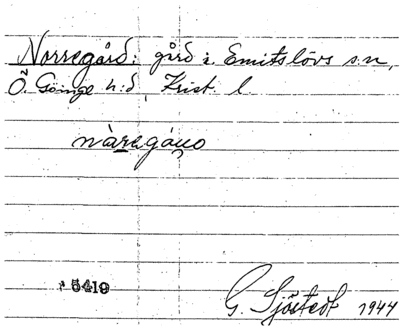 Norregård: gård i Emitslövs sn,
Ö. Göinge h:d, Krist. l
nàregáṷo
5419
G. Sjöstedt 1944